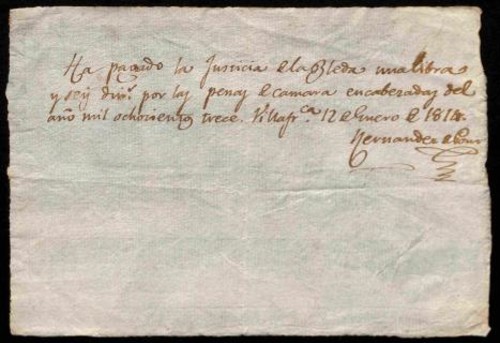 Ha pagado la Justicia de la Gleda una libra
y seiy din.ˢ por lay penay de camara encabezaday del
año mil ochocientoy trece. Villafr.ᶜᵃ 12 de Enero de 1814.
Hernandez